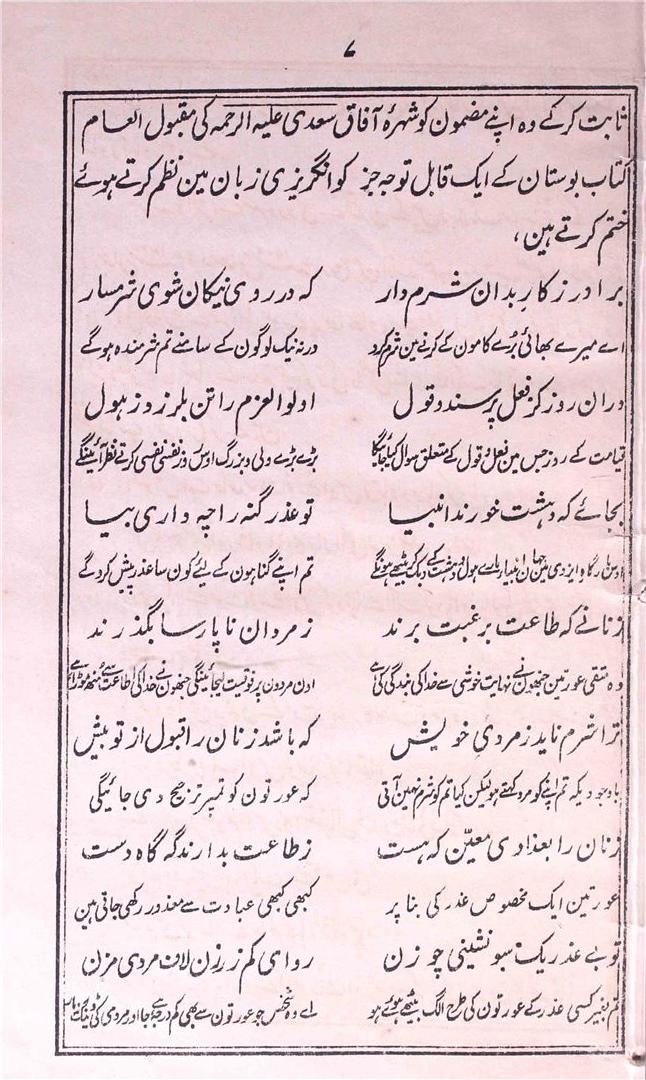 ۷
ثابت کرکے وہ اپنے مضمون کو شہرۂ آفاق سعدی علیہ الرحمہ کی مقبول العام
کتاب بوستان کے ایک قابل توجہ جز کو انگریزی زبان مین نظم کرتے ہوئے
ختم کرتے ہین،
برادر ز کار بدان شرم دار که در روی نیکان شوی شرمسار
اے میرے بھائی بڑے کامون کے کرنے مین شرم کرو ورنہ نیک لوگون کے سامنے تم شرمندہ ہوگے
دران روز کز فعل پرسند و قول اولوالعزم را تن بلرزد ز هول
قیامت کے روز جس مین فعل و قول کے متعلق سوال کیا جائیگا بڑے بڑے ولی و بزرگ اوس روز نفسی نفسی کرتے نظر آئینگے
بجائے که دہشت خورند انبیا تو عذر گنه را چه داری بیا
اوس بارگاہ ایزدی مین جہان انبیا مارے ہول و دہشت کے دبک کر بیٹھے ہونگے تم اپنے گناہون کے لئے کون سا عذر پیش کروگے
زنانے که طاعت برغبت برند ز مردان ناپارسا بگذرند
وہ متقی عورتین جنھون نے نہایت خوشی سے خدا کی بندگی کی ہے اون مردون پر فوقیت لیجائینگی جنھون نے خدا کی اطاعت سے منھ موڑا ہے
ترا شرم ناید ز مردیِ خویش که باشد زنان را قبول از تو بیش
باوجودیکہ تم اپنے کو مرد کہتے ہو لیکن کیا تم کو شرم نہین آتی کہ عورتون کو تمپر ترجیح دی جائیگی
زنان را بعذادی معیّن که هست ز طاعت بدارند گه گاه دست
عورتین ایک مخصوص عذر کی بنا پر کبھی کبھی عبادت سے معذور رکھی جاتی ہین
تو بے عذر یک سو نشینی چو زن رو ای کم ز زن لاف مردی مزن
تم بغیر کسی عذر کے عورتون کی طرح الگ بیٹھے ہوئے ہو اے وہ شخص جو عورتون سے بھی کم درجہ ہے جا اور مردی کی